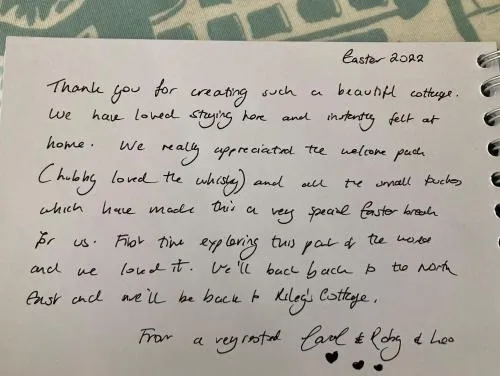 Easter 2022
Thank you for creating such a beautiful cottage.
We have loved staying here and instantly felt at
home. We really appreciated the welcome pack
(hubby loved the whisky) and all the small touches
which have made this a very special Easter break
for us. First time exploring this part of the world
and we loved it. We'll back back to the North
East and we'll be back to Riley's Cottage.
From a very rested Carol & & Leo